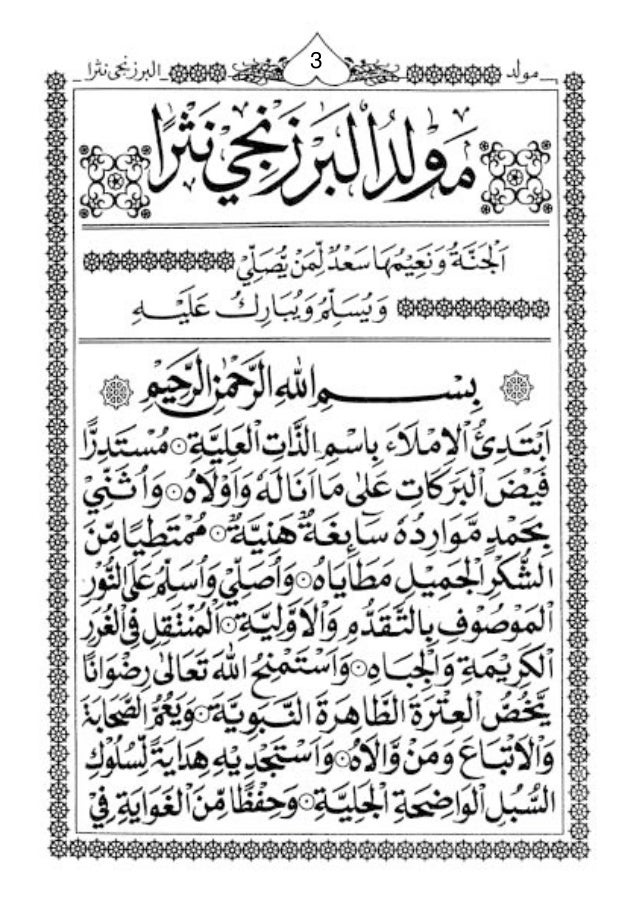 مولد
3
البرزنجي نثرا
مَوْلِدُ الْبَرْزَنْجِيْ نَثْرًا
اَلْجَنَّةُ وَنَعِيْمُهَا سَعْدٌ لِّمَنْ يُّصَلِّيْ
وَيُسَلِّمُ وَيُبَارِكُ عَلَيْهِ
بِسْمِ اللهِ الرَّحْمٰنِ الرَّحِيْمِ
اَبْتَدِئُ الْاِمْلَاءَ بِاسْمِ الذَّاتِ الْعَلِيَّةِ ۝ مُسْتَدِرًّا
فَيْضَ الْبَرَكَاتِ عَلٰى مَا اَنَالَهُ وَاَوْلَاهُ ۝ وَاُثَنِّيْ
بِحَمْدٍ مَّوَارِدُهُ سَائِغَةٌ هَنِيَّةٌ ۝ مُمْتَطِيًا مِّنَ
الشُّكْرِ الْجَمِيْلِ مَطَايَاهُ ۝ وَاُصَلِّيْ وَاُسَلِّمُ عَلَى النُّوْرِ
الْمَوْصُوْفِ بِالتَّقَدُّمِ وَالْاَوَّلِيَّةِ ۝ الْمُنْتَقِلِ فِي الْغُرَرِ
الْكَرِيْمَةِ وَالْجِبَاهِ ۝ وَاَسْتَمْنِحُ اللهَ تَعَالٰى رِضْوَانًا
يَّخُصُّ الْعِتْرَةَ الطَّاهِرَةَ النَّبَوِيَّةَ ۝ وَيَعُمُّ الصَّحَابَةَ
وَالْاَتْبَاعَ وَمَنْ وَّالَاهُ ۝ وَاَسْتَجْدِيْهِ هِدَايَةً لِّسُلُوْكِ
السُّبُلِ الْوَاضِحَةِ الْجَلِيَّةِ ۝ وَحِفْظًا مِّنَ الْغَوَايَةِ فِيْ